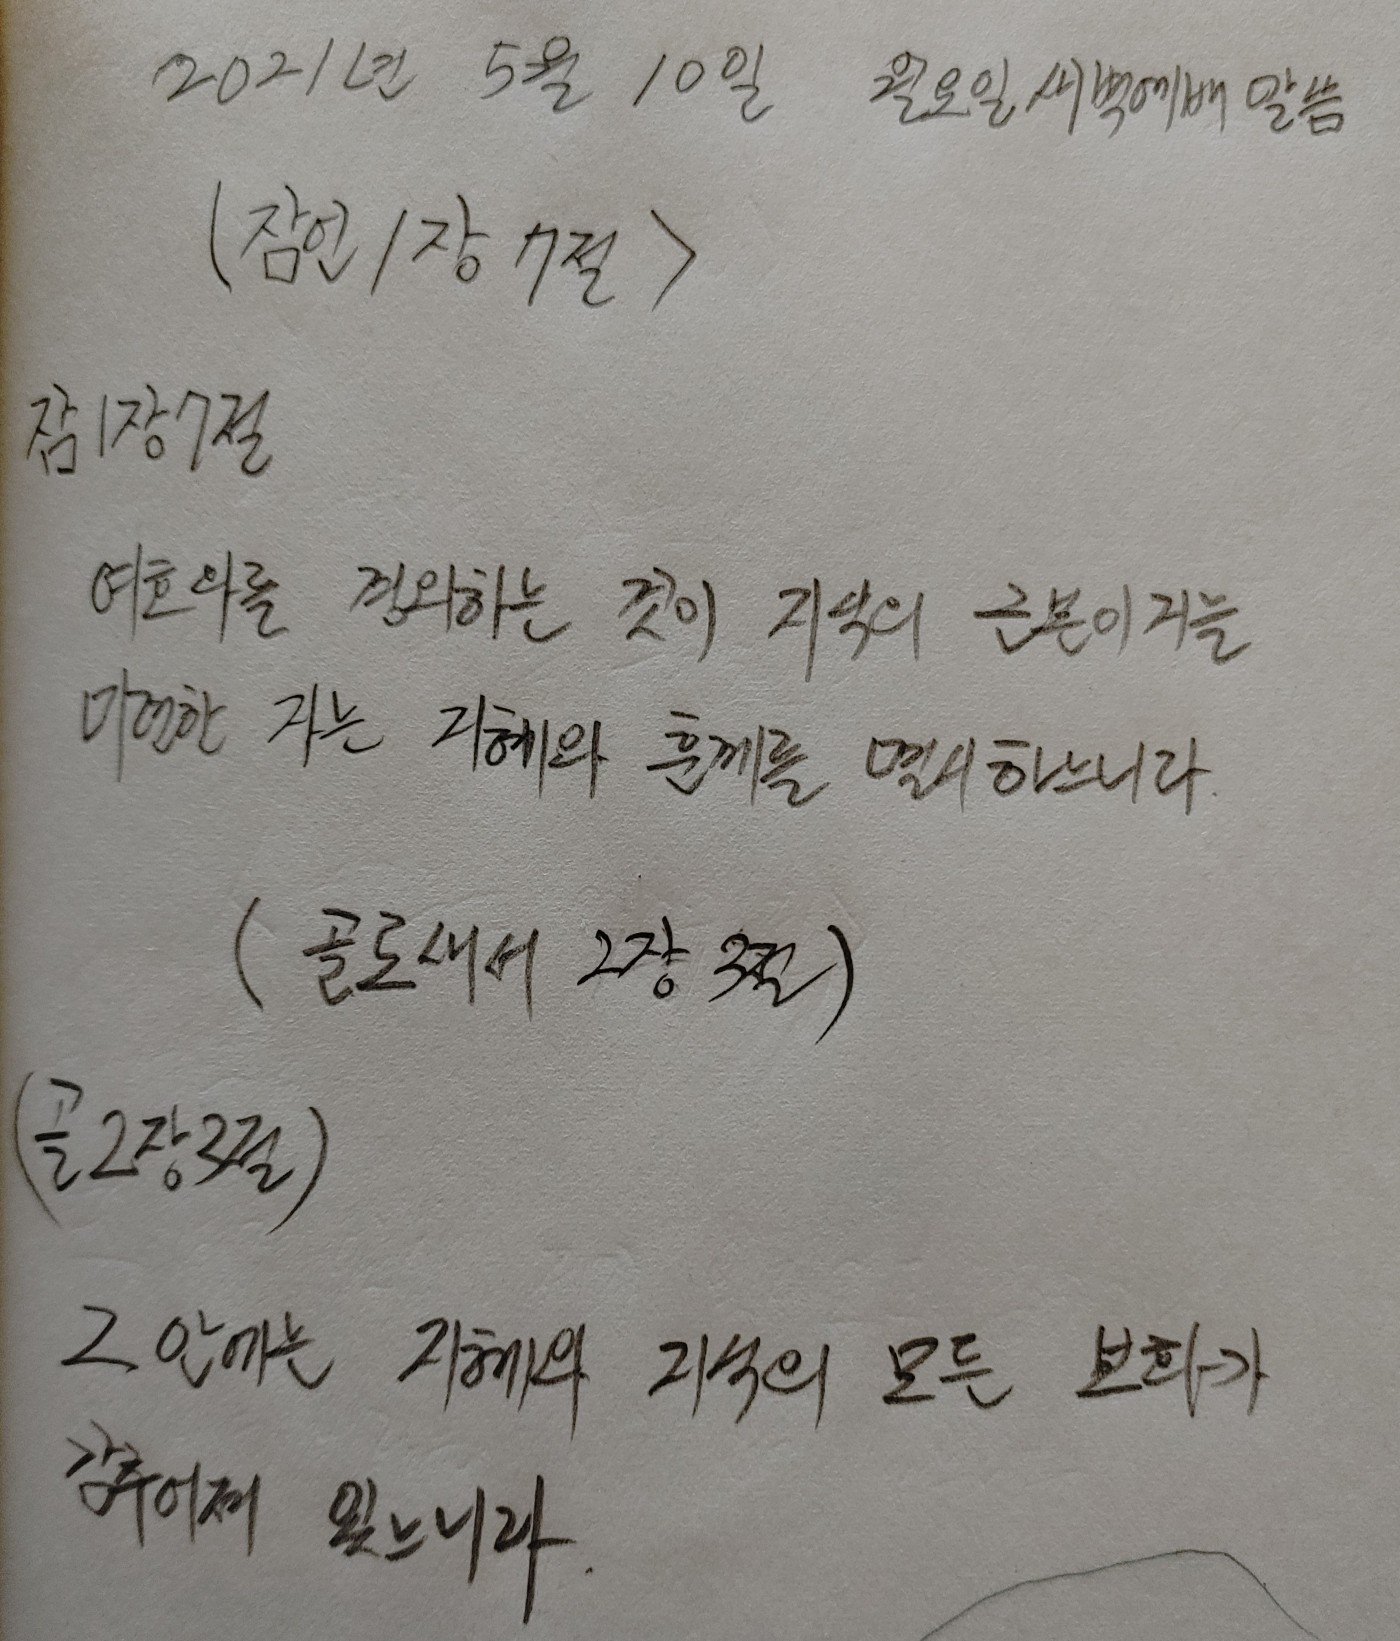 2021년 5월 10일 월요일 새벽예배 말씀
(잠언 1장 7절>
잠1장7절
여호와를 경외하는 것이 지식의 근본이거늘
미련한 자는 지혜와 훈계를 멸시하느니라.
( 골로새서 2장 3절)
(골2장3절)
그 안에는 지혜와 지식의 모든 보화가
감추어져 있느니라.